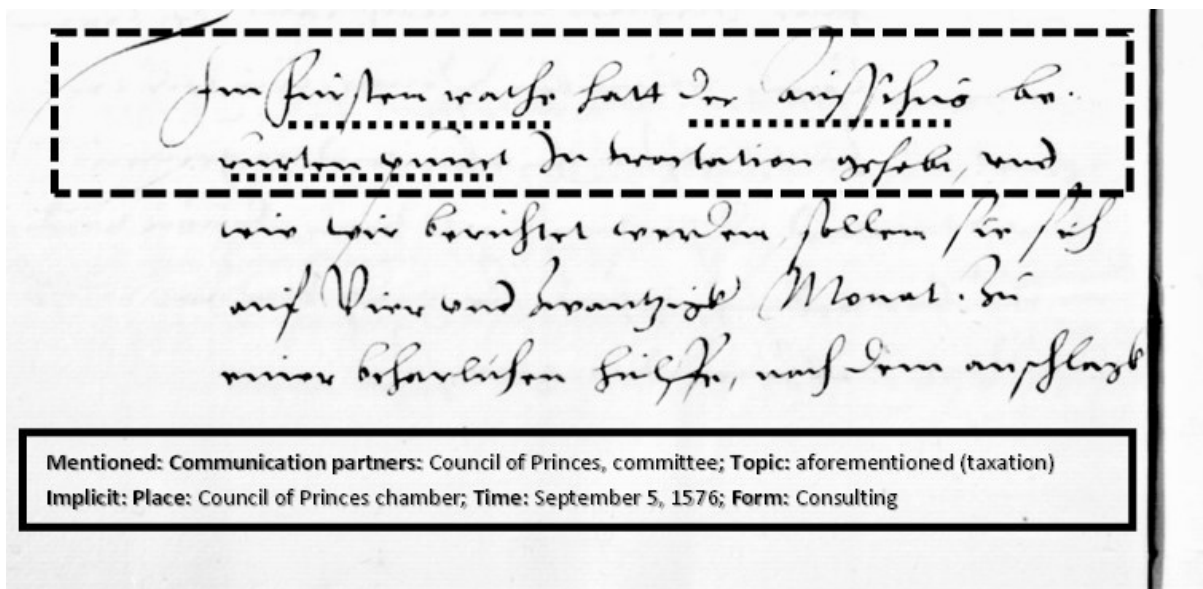 Im Fursten rathe hatt der Ausschus be-
rurten punct In tractation gehabt, vnd
wie wir berichtet werden, sollen sie sich
auf Vier vnd Zwantzigk Monat. Zu
einer beharlichen hülffe, nach dem anschlagk
Mentioned: Communication partners: Council of Princes, committee; Topic: aforementioned (taxation)
Implicit: Place: Council of Princes chamber; Time: September 5, 1576; Form: Consulting